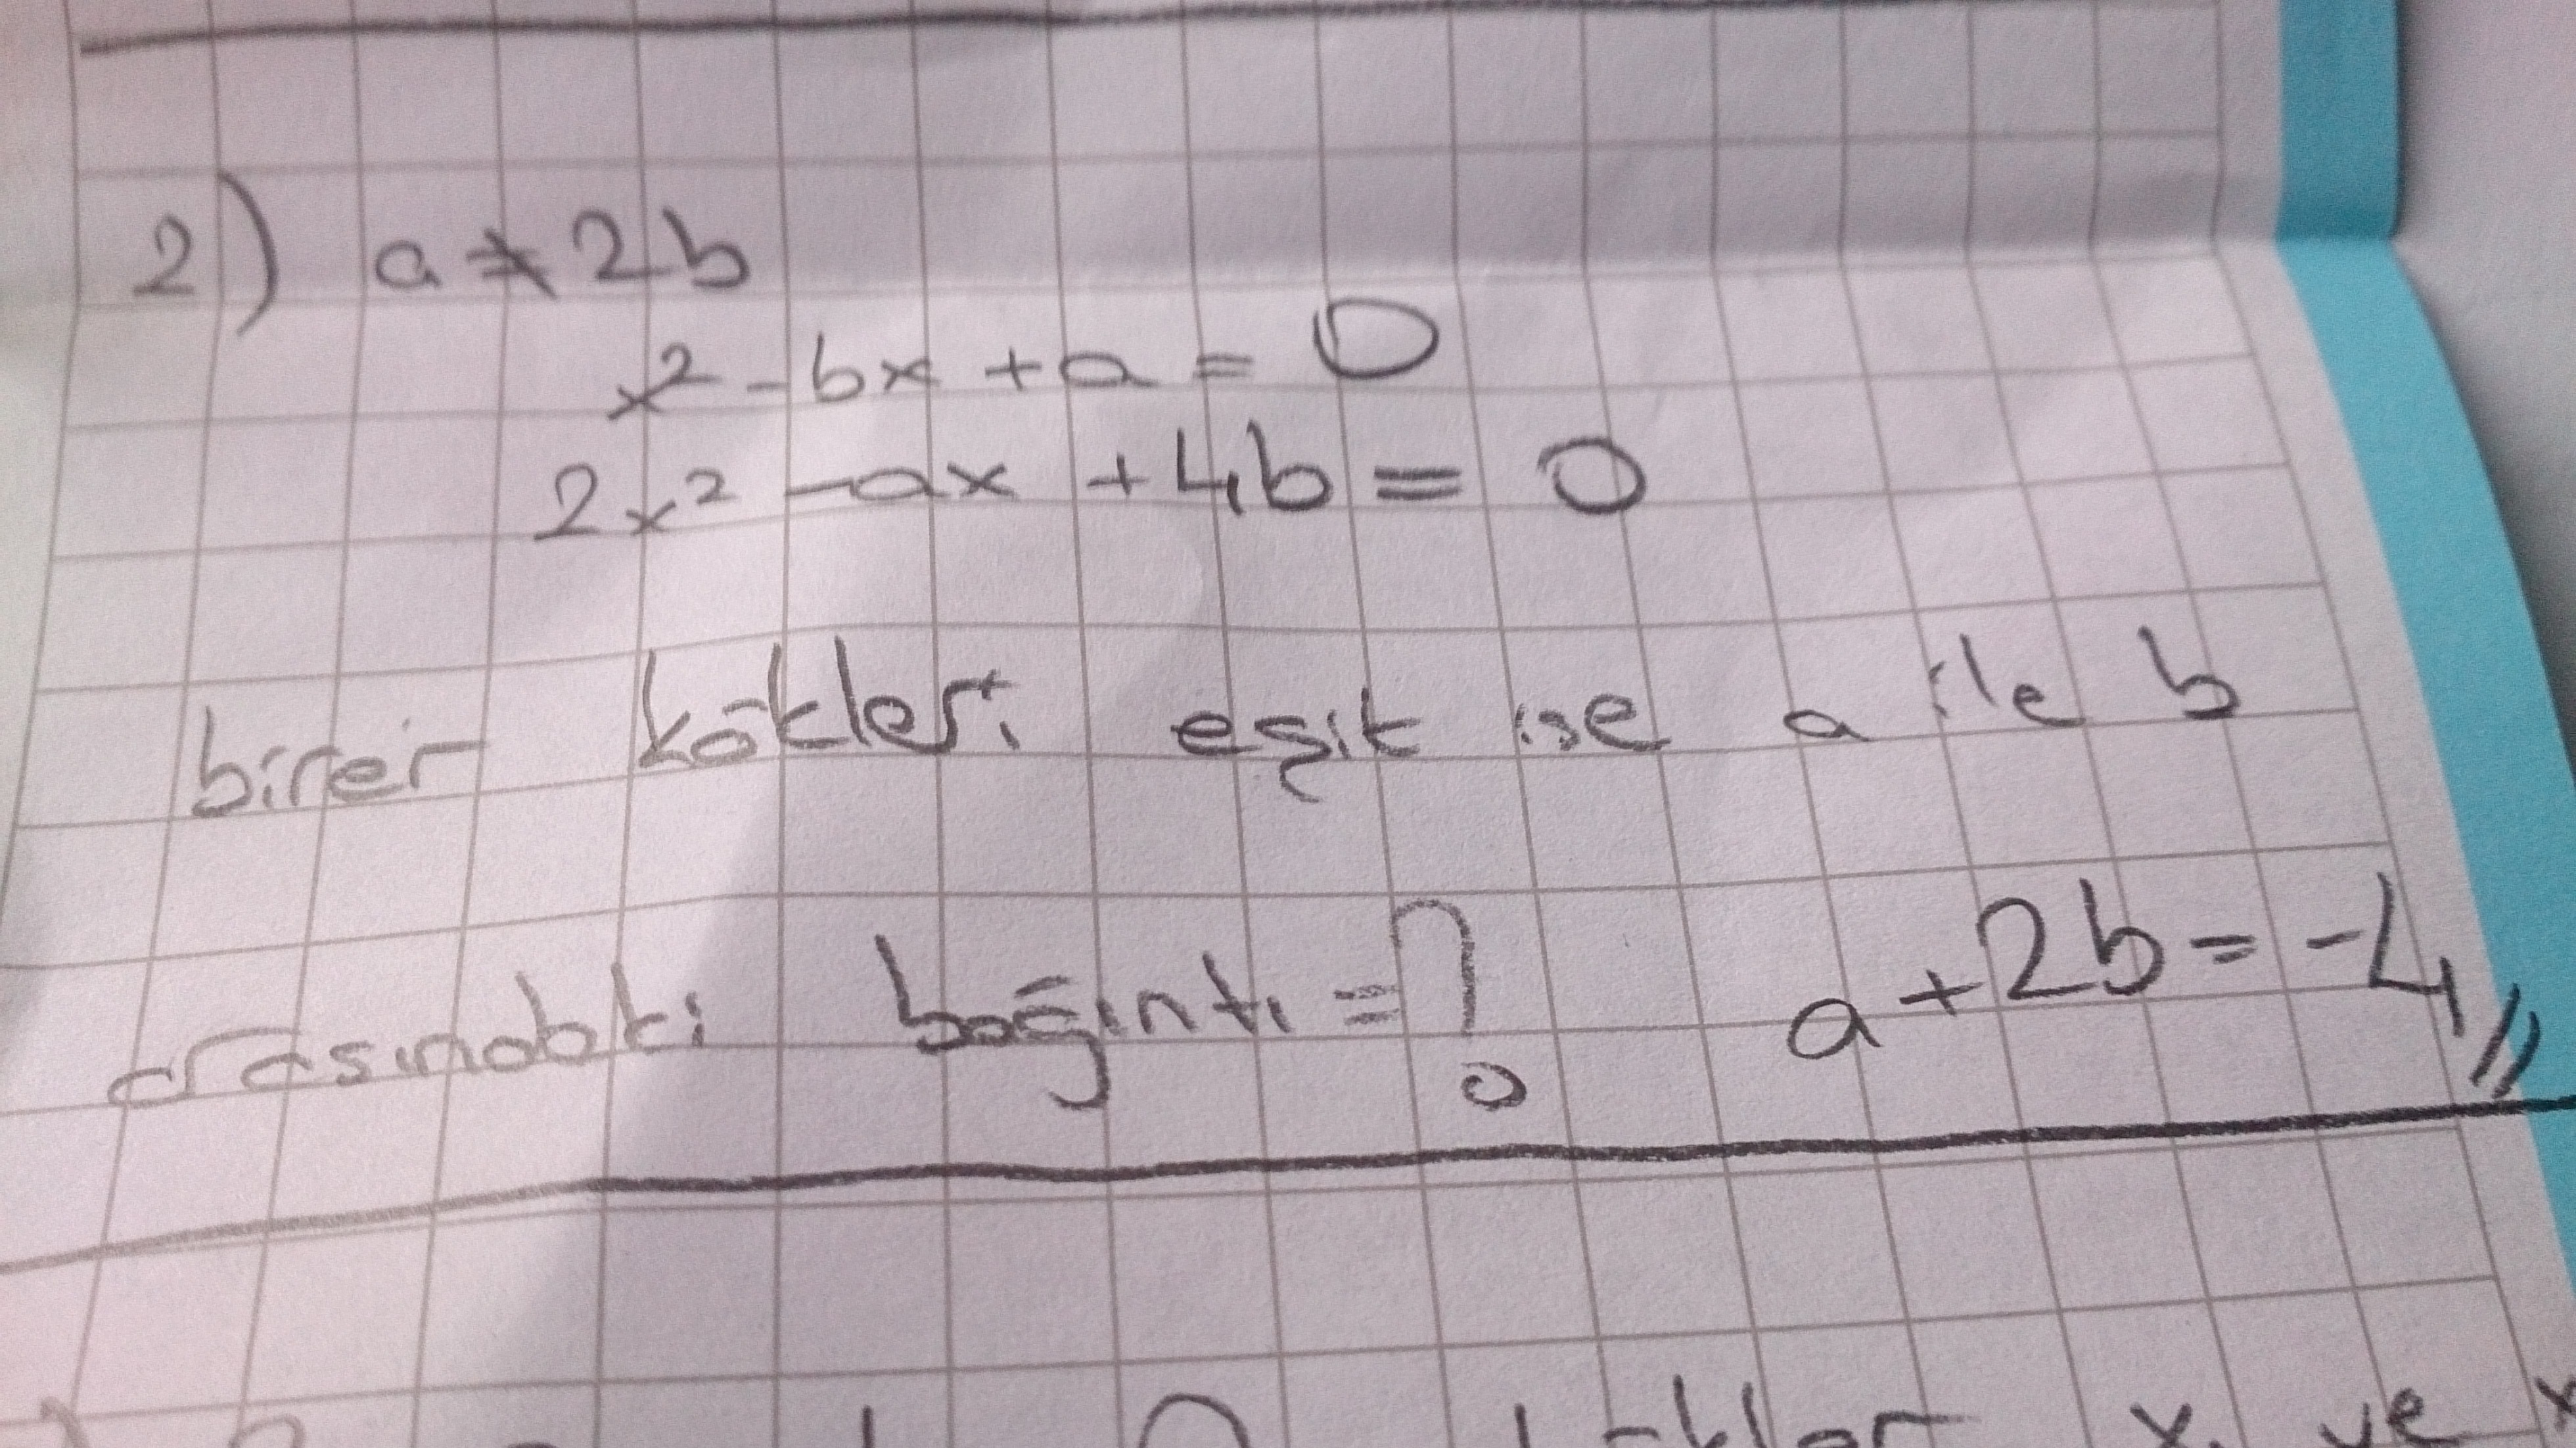 2) a ≠ 2b
x² - bx + a = 0
2x² - ax + 4b = 0
birer kökleri eşit ise a ile b
arasındaki bağıntı = ? a + 2b = -4 //